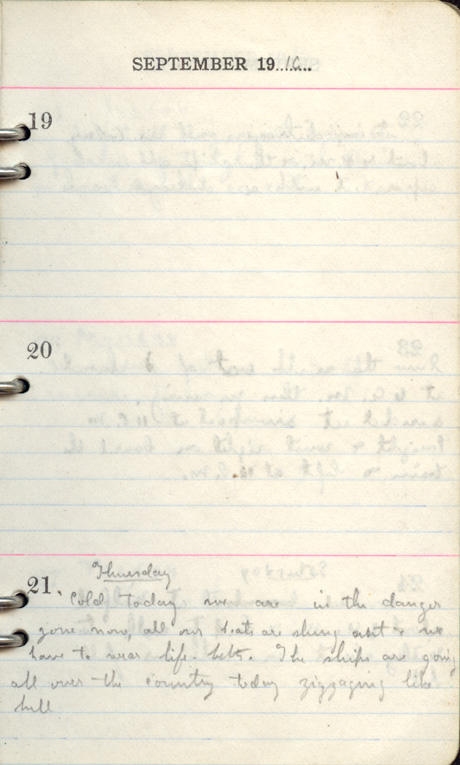 SEPTEMBER 1916
19
20
21. Thursday
Cold today we are in the danger
zone now, all our boats are slung out & we
have to wear life belts. The ships are going
all over the country today zigzaging like
hell